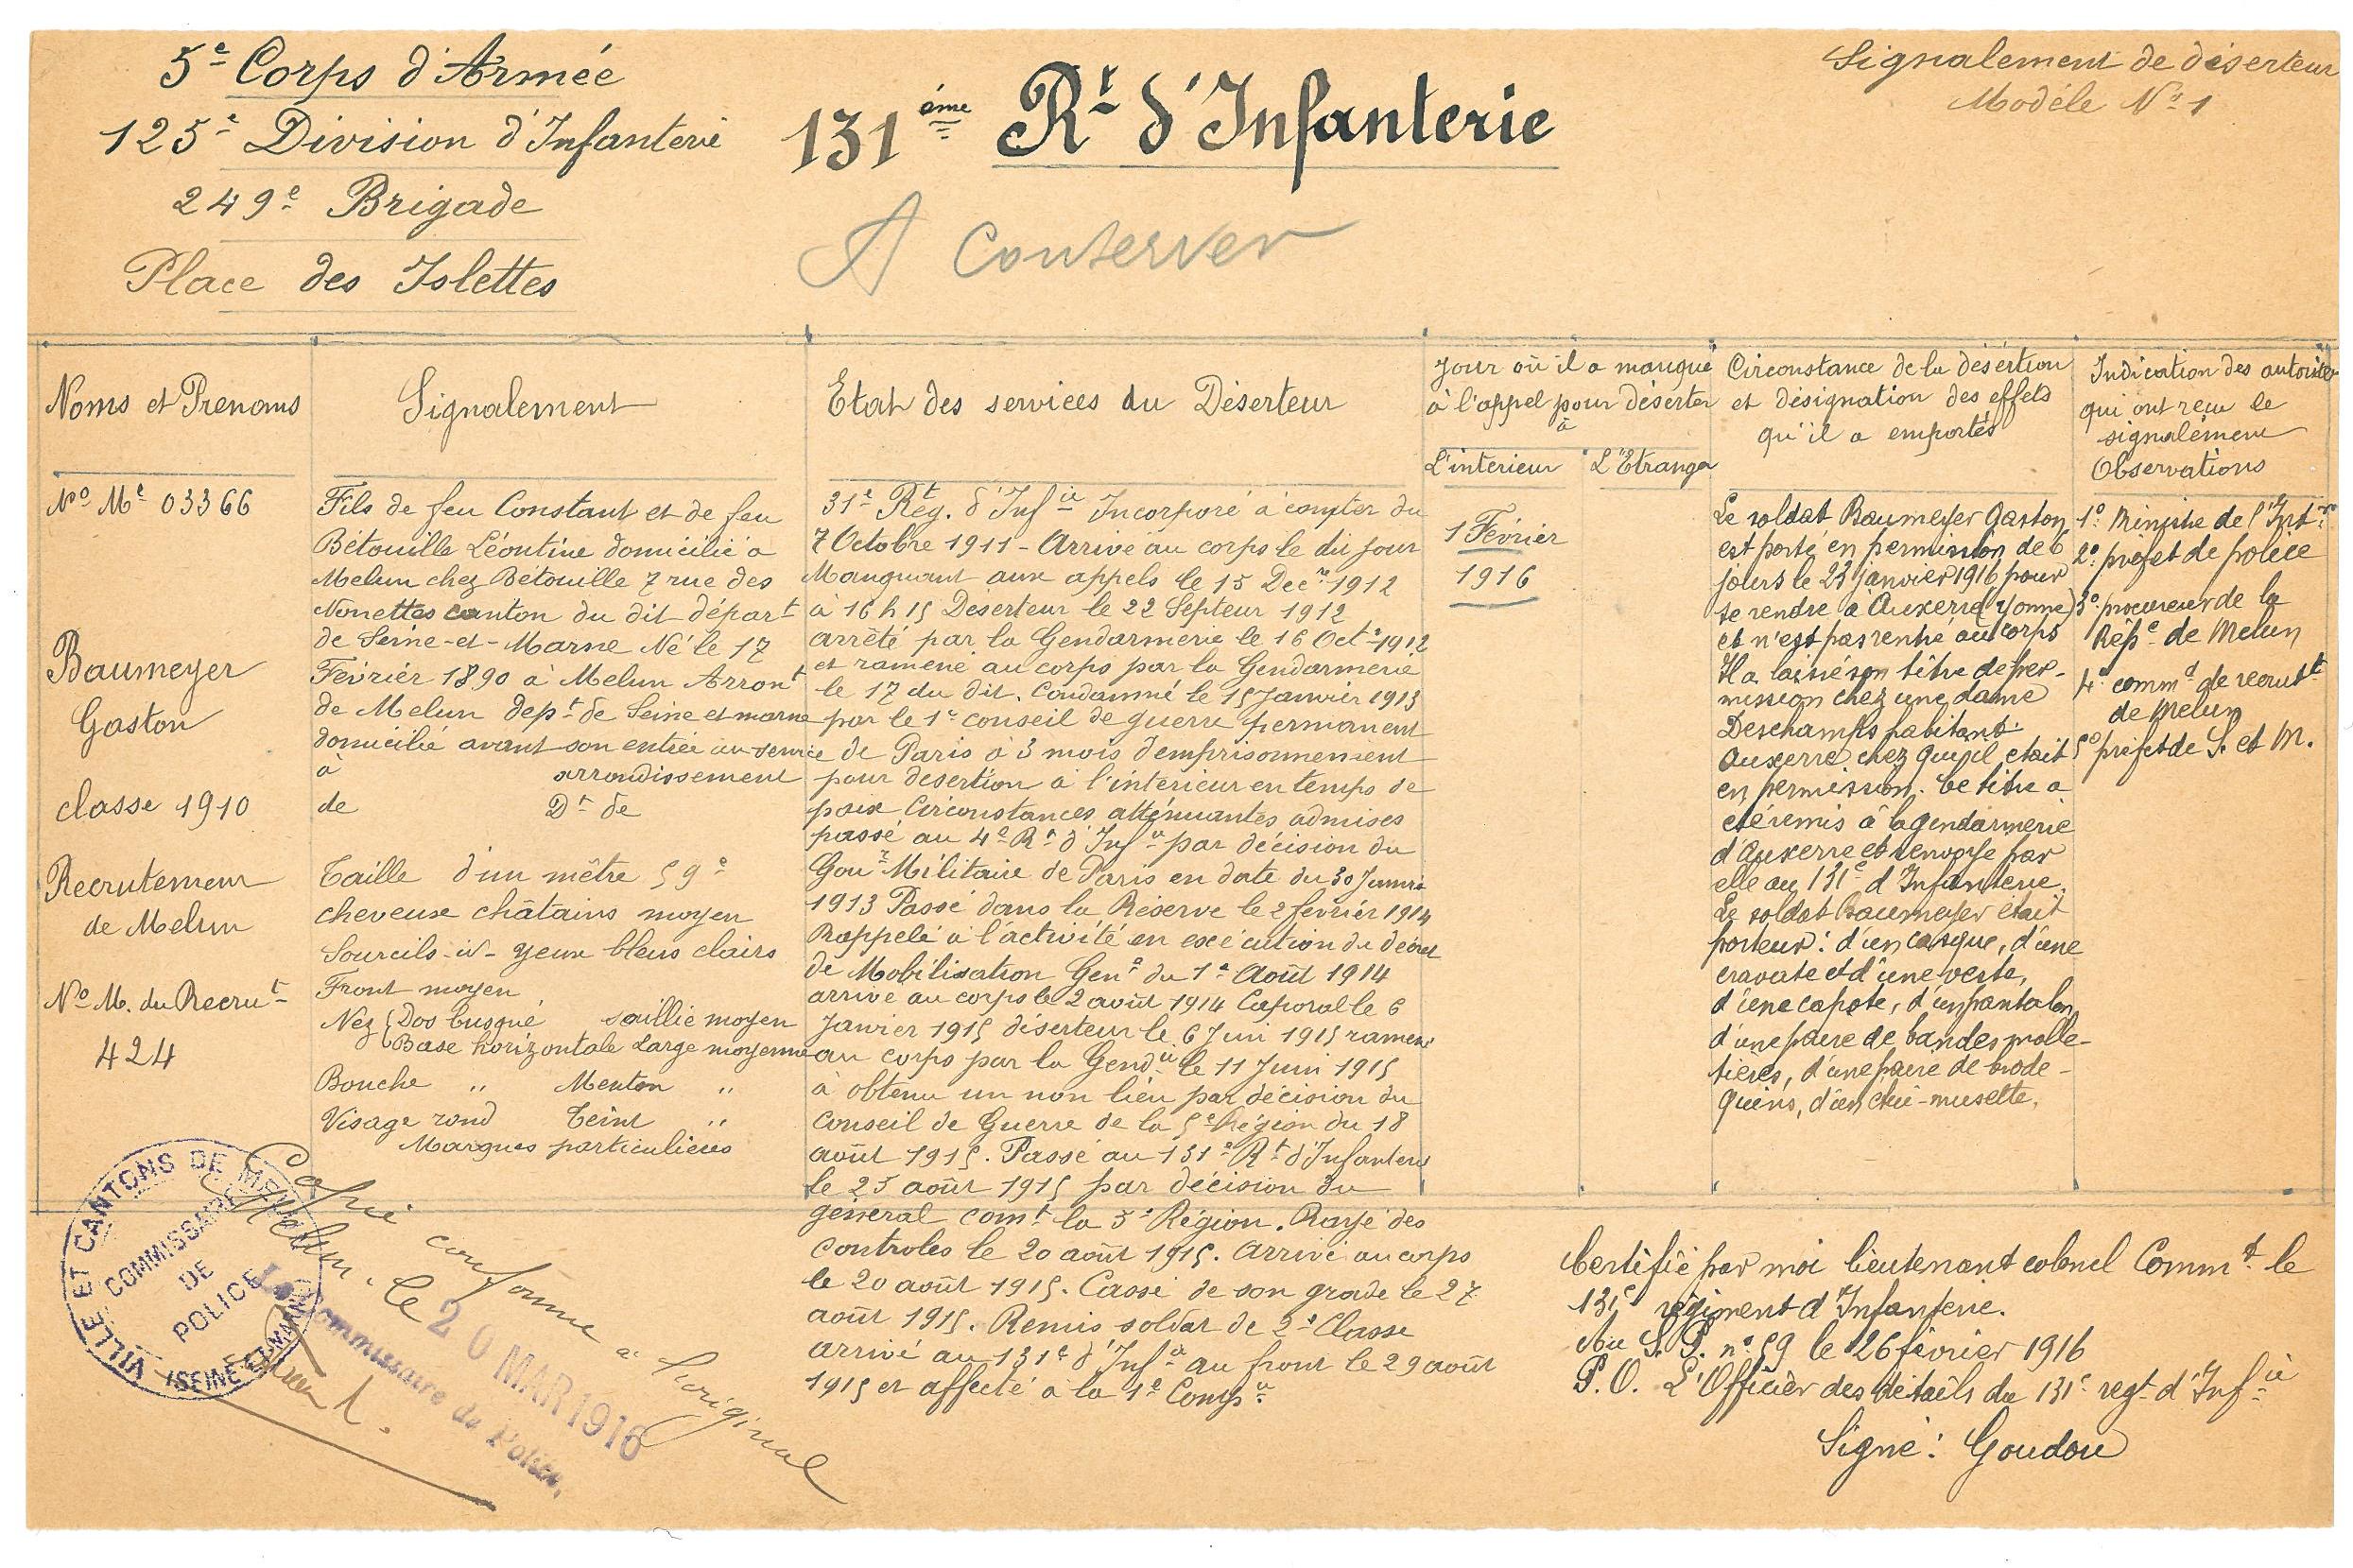 5e Corps d'Armée
125e Division d'Infanterie
249e Brigade
Place des Islettes
131ème Rt d'Infanterie
A Conserver
Signalement de déserteur
Modèle No 1
Noms et Prenoms
No Me 03366
Baumeyer
Gaston
classe 1910
Recrutement
de Melun
No M. du Recrut
424
Signalement
Fils de feu Constant et de feu
Bétouille Léontine domicilié à
Melun chez Bétouille 7 rue des
Nonettes canton du dit départt
de Seine-et-Marne Né le 17
Février 1890 à Melun Arront
de Melun dept de Seine et marne
domicilié avant son entrée au service
à arrondissement
de Dt de
Taille d'un mètre 59c
cheveux châtains moyen
Sourcils-id- yeux bleus clairs
Front moyen
Nez { Dos busqué saillie moyen
Base horizontale Large moyenne
Bouche " Menton "
Visage rond Teint "
Marques particulières
Etat des services du Déserteur
31e Rég. d'Infie Incorporé à compter du
7 Octobre 1911 - Arrivé au corps le dit jour
Manquant aux appels le 15 Decre 1912
à 16 h 15 Déserteur le 22 Septeur 1912
arrêté par la Gendarmerie le 16 Oct 1912
et ramené au corps par la Gendarmerie
le 17 du dit. Condamné le 15 Janvier 1913
par le 1e conseil de guerre permanent
de Paris à 3 mois d'emprisonnement
pour désertion à l'intérieur en temps de
paix Circonstances atténuantes admises
passé au 4e Rt d'Infie par décision du
Gour Militaire de Paris en date du 30 Janvier
1913 Passé dans la Réserve le 2 février 1914
Rappelé à l'activité en exécution du décret
de Mobilisation Genle du 1e Août 1914
arrivé au corps le 2 août 1914 Caporal le 6
Janvier 1915 déserteur le 6 Juin 1915 ramené
au corps par la Gendie le 11 Juin 1915
à obtenu un non lieu par décision du
Conseil de Guerre de la 5e Région du 18
août 1915. Passé au 131e Rt d'Infanterie
le 25 août 1915 par décision du
général comt la 5e Région. Rayé des
controles le 20 août 1915. Arrivé au corps
le 20 août 1915. Cassé de son grade le 27
août 1915. Remis soldat de 2e Classe
arrivé au 131e d'Infie au front le 29 août
1915 et affecté à la 1e Compie
Jour où il a manqué
à l'appel pour déserter
à
L'intérieur L'Etranger
1 Février
1916
Circonstance de la désertion
et désignation des effets
qu'il a emportés
Le soldat Baumeyer Gaston
est porté en permission de 6
jours le 23 janvier 1916 pour
se rendre à Auxerre (Yonne)
et n'est pas rentré au corps
Il a laissé son titre de per-
mission chez une dame
Deschamps habitant
Auxerre chez qui il était
en permission. Ce titre a
été remis à la gendarmerie
d'Auxerre et renvoyé par
elle au 131e d'Infanterie.
Le soldat Baumeyer était
porteur: d'un casque, d'une
cravate et d'une veste,
d'une capote, d'un pantalon,
d'une paire de bandes molle-
tières, d'une paire de brode-
quins, d'un étui-musette.
Indication des autorités
qui ont reçu le
signalement
Observations
1o Ministre de l'Intr
2o préfet de police
3o procureur de la
Répe de Melun
4o commt de recrutt
de Melun
5o préfet de S. et M.
Certifié par moi lieutenant colonel Commt le
131e régiment d'Infanterie.
Au S.P. no 59 le 26 février 1916
P.O. L'Officier des détails du 131e regt d'Infie
Signé: Goudou
Copie conforme à l'original
Melun, le 20 MAR 1916
Le Commissaire de Police,
VILLE ET CANTONS DE MELUN
COMMISSAIRE
DE
POLICE
(SEINE ET MARNE)